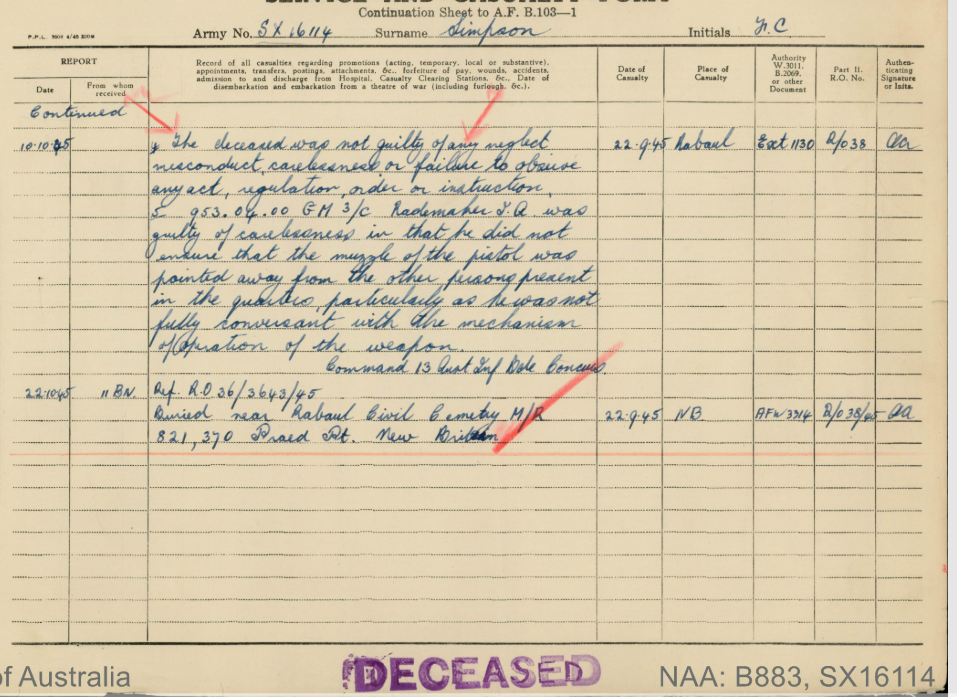 SERVICE AND CASUALTY FORM
Continuation Sheet to A.F. B.103—1
P.P.L. 3508 4/45 200M
Army No. SX16114 Surname Simpson Initials C
REPORT
Date
From whom received
Record of all casualties regarding promotions (acting, temporary, local or substantive),
appointments, transfers, postings, attachments, &c., forfeiture of pay, wounds, accidents,
admission to and discharge from Hospital, Casualty Clearing Stations, &c., Date of
disembarkation and embarkation from a theatre of war (including furlough, &c.).
Date of Casualty
Place of Casualty
Authority W.3011, B.2069, or other Document
Part II. R.O. No.
Authenticating Signature or Inits.
Continued
10.10.45 4 The deceased was not guilty of any neglect 22.9.45 Rabaul Ext 1130 R/O 38 aa
misconduct, carelessness or failure to observe
any act, regulation, order or instruction.
5 953.04.00 GM 3/c Rademaker J.A. was
guilty of carelessness in that he did not
ensure that the muzzle of the pistol was
pointed away from the other persons present
in the quarters, particularly as he was not
fully conversant with the mechanism
of operation of the weapon.
Command 13 Aust Inf Bde Concurs
22.10.45 11 BN. Ref. R.O 36/3643/45
Buried near Rabaul Civil Cemetry M/R 22.9.45 NB AFW 3314 R/O 38/45 aa
821,370 Praed Pt. New Britain
DECEASED
of Australia
NAA: B883, SX16114